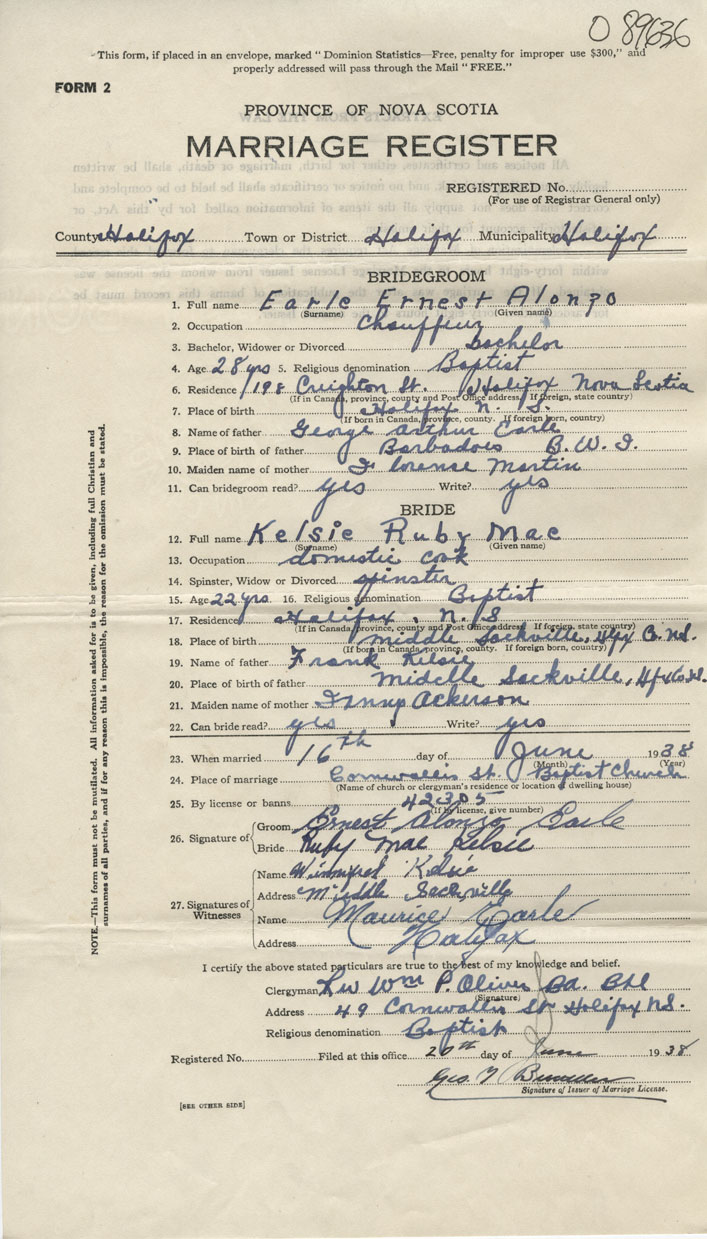 O 89636
This form, if placed in an envelope, marked "Dominion Statistics—Free, penalty for improper use $300," and
properly addressed will pass through the Mail "FREE."
FORM 2
PROVINCE OF NOVA SCOTIA
MARRIAGE REGISTER
REGISTERED No.
(For use of Registrar General only)
County Halifax Town or District Halifax Municipality Halifax
BRIDEGROOM
1. Full name Earle Ernest Alonzo
(Surname) (Given name)
2. Occupation Chauffeur
3. Bachelor, Widower or Divorced bachelor
4. Age 28 yrs 5. Religious denomination Baptist
6. Residence 198 Creighton St. Halifax Nova Scotia
(If in Canada, province, county and Post Office address. If foreign, state country)
7. Place of birth Halifax N. S.
(If born in Canada, province, county. If foreign born, country)
8. Name of father George Arthur Earle
9. Place of birth of father Barbadoes B. W. I.
10. Maiden name of mother Florense Martin
11. Can bridegroom read? yes Write? yes
BRIDE
12. Full name Kelsie Ruby Mae
(Surname) (Given name)
13. Occupation domestic cook
14. Spinster, Widow or Divorced spinster
15. Age 22 yrs 16. Religious denomination Baptist
17. Residence Halifax, N. S
(If in Canada, province, county and Post Office address. If foreign, state country)
18. Place of birth Middle Sackville, Hfx Co. N.S.
(If born in Canada, province, county. If foreign born, country)
19. Name of father Frank Kelsie
20. Place of birth of father Middle Sackville, Hfx Co. N.S.
21. Maiden name of mother Fanny Ackerson
22. Can bride read? yes Write? yes
23. When married 16th day of June 1938
(Month) (Year)
24. Place of marriage Cornwallis St. Baptist Church
(Name of church or clergyman's residence or location of dwelling house)
25. By license or banns 42305
(If by license, give number)
26. Signature of Groom Ernest Alonzo Earle
Bride Ruby Mae Kelsie
27. Signatures of Witnesses
Name Winnifred Kelsie
Address Middle Sackville
Name Maurice Earle
Address Halifax
I certify the above stated particulars are true to the best of my knowledge and belief.
Clergyman Wm P. Oliver BA. BD
(Signature)
Address 49 Cornwallis St Halifax N.S.
Religious denomination Baptist
Registered No. Filed at this office 20th day of June 1938
Geo. T
Signature of Issuer of Marriage License.
[SEE OTHER SIDE]
NOTE.—This form must not be mutilated. All information asked for is to be given, including full Christian and
surnames of all parties, and if for any reason this is impossible, the reason for the omission must be stated.